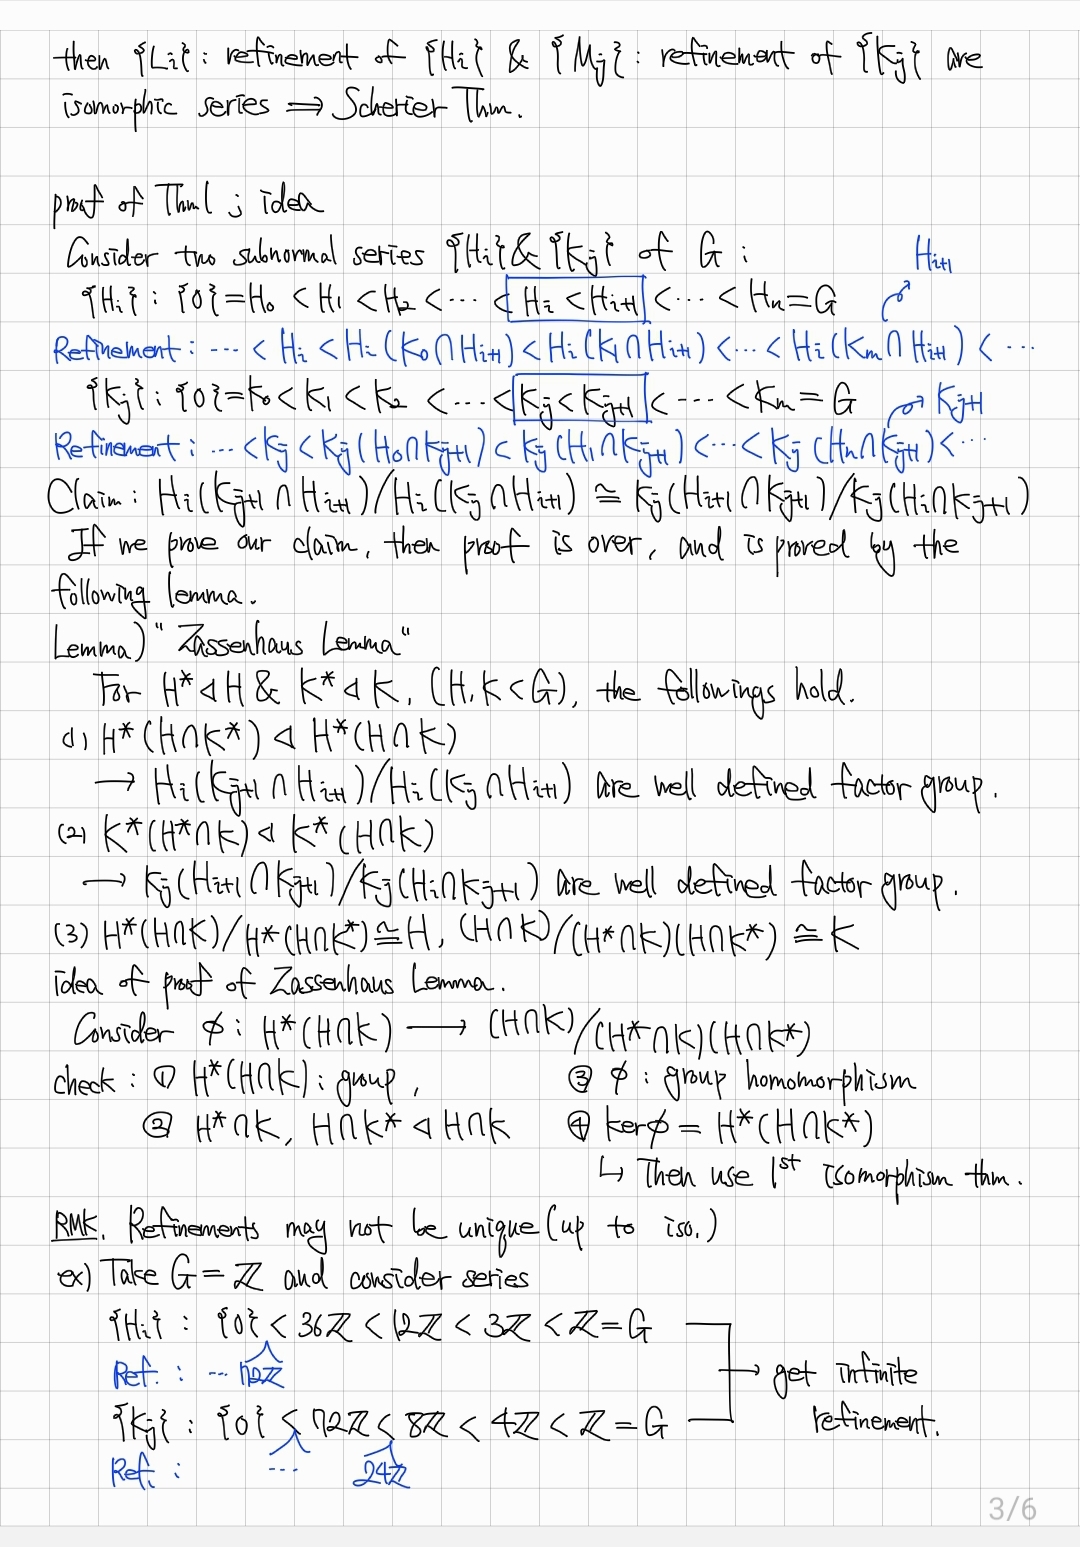 then {Li} : refinement of {Hi} & {Mj} : refinement of {Kj} are
isomorphic series ⟹ Scherier Thm.
proof of Thm1 ; idea
Consider two subnormal series {Hi} & {Kj} of G :
Hi+1
{Hi} : {0}=H0 < H1 < H2 < ··· < Hi < Hi+1 < ··· < Hn = G
Refinement : ··· < Hi < Hi(K0∩Hi+1) < Hi(K1∩Hi+1) < ··· < Hi(Km∩Hi+1) < ···
{Kj} : {0}=K0 < K1 < K2 < ··· < Kj < Kj+1 < ··· < Km = G
Kj+1
Refinement : ··· < Kj < Kj(H0∩Kj+1) < Kj(H1∩Kj+1) < ··· < Kj(Hn∩Kj+1) < ···
Claim : Hi(Kj+1∩Hi+1)/Hi(Kj∩Hi+1) ≅ Kj(Hi+1∩Kj+1)/Kj(Hi∩Kj+1)
If we prove our claim, then proof is over, and is proved by the
following lemma.
Lemma) "Zassenhaus Lemma"
For H*◁H & K*◁K, (H,K<G), the followings hold.
(1) H*(H∩K*) ◁ H*(H∩K)
→ Hi(Kj+1∩Hi+1)/Hi(Kj∩Hi+1) are well defined factor group.
(2) K*(H*∩K) ◁ K*(H∩K)
→ Kj(Hi+1∩Kj+1)/Kj(Hi∩Kj+1) are well defined factor group.
(3) H*(H∩K)/H*(H∩K*) ≅ H, (H∩K)/(H*∩K)(H∩K*) ≅ K
idea of proof of Zassenhaus Lemma.
Consider ϕ : H*(H∩K) ⟶ (H∩K)/(H*∩K)(H∩K*)
check : ① H*(H∩K) : group, ③ ϕ : group homomorphism
② H*∩K, H∩K* ◁ H∩K ④ kerϕ = H*(H∩K*)
↳ Then use 1st isomorphism thm.
RMK. Refinements may not be unique (up to iso.)
ex) Take G = ℤ and consider series
{Hi} : {0} < 36ℤ < 12ℤ < 3ℤ < ℤ = G
Ref. : ··· 72ℤ
→ get infinite
refinement.
{Kj} : {0} < 72ℤ < 8ℤ < 4ℤ < ℤ = G
Ref. : ··· 24ℤ
3/6